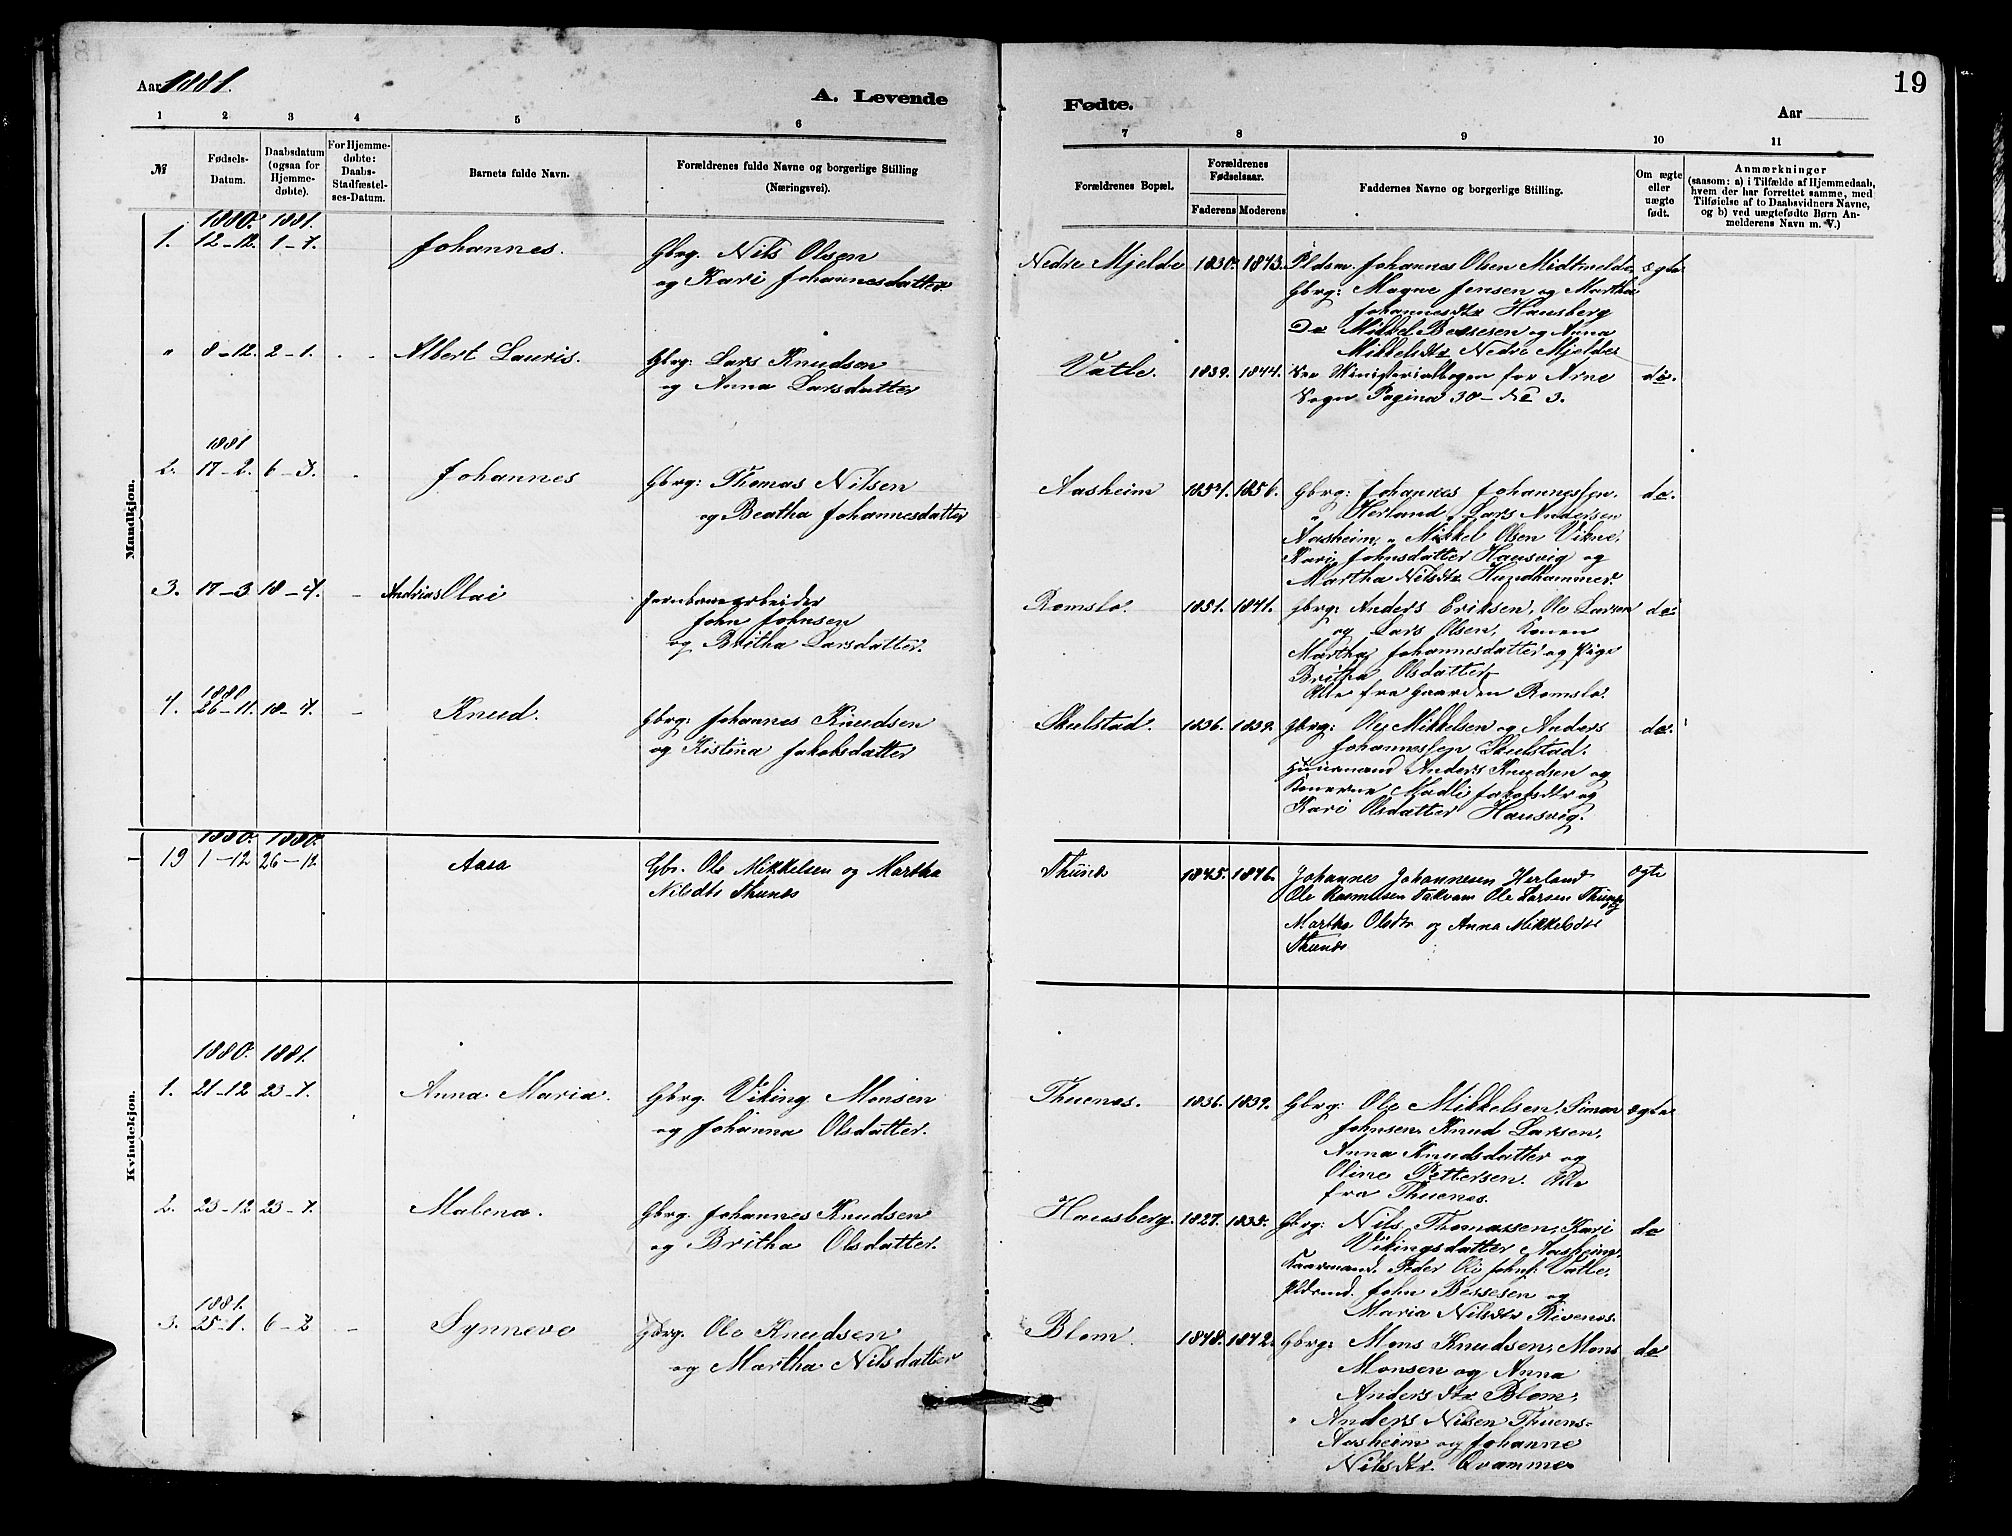 19
Aar 1881.
A. Levende
Fødte.
Aar
1 2 3 4 5 6 7 8 9 10 11
№
Fødsels-Datum.
Daabsdatum (ogsaa for Hjemme-døbte).
For Hjemme-døbte: Daabs-Stadfæstel-ses-Datum.
Barnets fulde Navn.
Forældrenes fulde Navne og borgerlige Stilling (Næringsvei).
Forældrenes Bopæl.
Forældrenes Fødselsaar.
Faderens Moderens
Faddernes Navne og borgerlige Stilling.
Om ægte eller uægte født.
Anmærkninger
(saasom: a) i Tilfælde af Hjemmedaab,
hvem der har forrettet samme, med
Tilføielse af to Daabsvidners Navne,
og b) ved uægtefødte Børn An-
melderens Navn m. V.)
Mandkjøn.
1880. 1881.
1. 12-12. 1-1. Johannes. Gbrg. Nils Olsen
og Kari Johannesdatter.
Nedre Mjelde 1830. 1843. Pldsm. Johannes Olsen Midtmelde ægte
Gbrg: Magne Jensen og Martha
Johannesdtr Hausberg
Do Mikkel Bessesen og Anna
Mikkelsdtr Nedre Mjelde
" 8-12. 2-1. - - Albert Lauris. Gbrg: Lars Knudsen
og Anna Larsdatter
Vatle. 1839. 1844. See Ministerialbogen for Arne do.
Sogn Pagina 30 - No 3.
1881
2. 17-2. 6-3. - Johannes Gbrg: Thomas Nilsen
og Beatha Johannesdatter
Aasheim 1854. 1856. Gbrg: Johannes Johannessen do.
" Herland, Lars Andersen
Aasheim, " Mikkel Olsen Vikne,
Kari Johnsdatter Hausvig og
Martha Nilsdtr Hundhammer.
3. 17-3 18-4. - Andrias Olai Jernbanearbeider
John Johnsen
og Britha Larsdatter.
Romslo. 1851. 1841. Gbrg: Anders Eriksen, Ole Larsen do
og Lars Olsen, Konen
Martha Johannesdatter og Pige
Britha Olsdatter
Alle fra Gaarden Romslo.
1880
4. 26-11. 18-4. - Knud. Gbrg: Johannes Knudsen
og Kistina Jakobsdatter
Skulstad. 1836. 1839. Gbrg: Ole Mikkelsen og Anders do.
Johannessen Skulstad.
Huusmand Anders Knudsen og
Konerne Madli Jakobsdtr og
Kari Olsdatter Hausvig.
1880. 1880.
19 1-12 26-12 Aasa Gbr. Ole Mikkelsen og Martha
Nilsdtr Thunes
Thunes 1845. 1846. Johannes Johannesen Herland ægte
Ole Rasmussen Takvam Ole Larsen Thunes
Martha Olsdtr og Anna Mikkelsdtr
Thunes
Kvindekjøn.
1880. 1881.
1. 21-12 23-1. Anna Maria. Gbrg: Viking Monsen
og Johanna Olsdatter.
Thuenes. 1836. 1839. Gbrg: Ole Mikkelsen, Simon ægte
Johnsen, Knud Larsen,
Anna Knudsdatter og
Oline Pettersen. Alle
fra Thuenes.
2. 23-12 23-1. Malena. Gbrg. Johannes Knudsen
og Britha Olsdatter.
Hausberg. 1827. 1835. Gbrg: Nils Thomassen, Kari do
Vikingsdatter Aasheim,
Peder Ole Johns. Vatle,
John Bessesen og
Maria Nilsdtr Rivenes.
1881.
3. 25-1. 6-2 - Synneve Gbrg. Ole Knudsen
og Martha Nilsdatter
Blom 1848. 1842. Gbrg: Mons Knudsen, Mons do
Monsen og Anna
Andersdtr Blom,
" Anders Nilsen Thuens-
Aasheim og Johanne
Nilsdtr. Qvamme